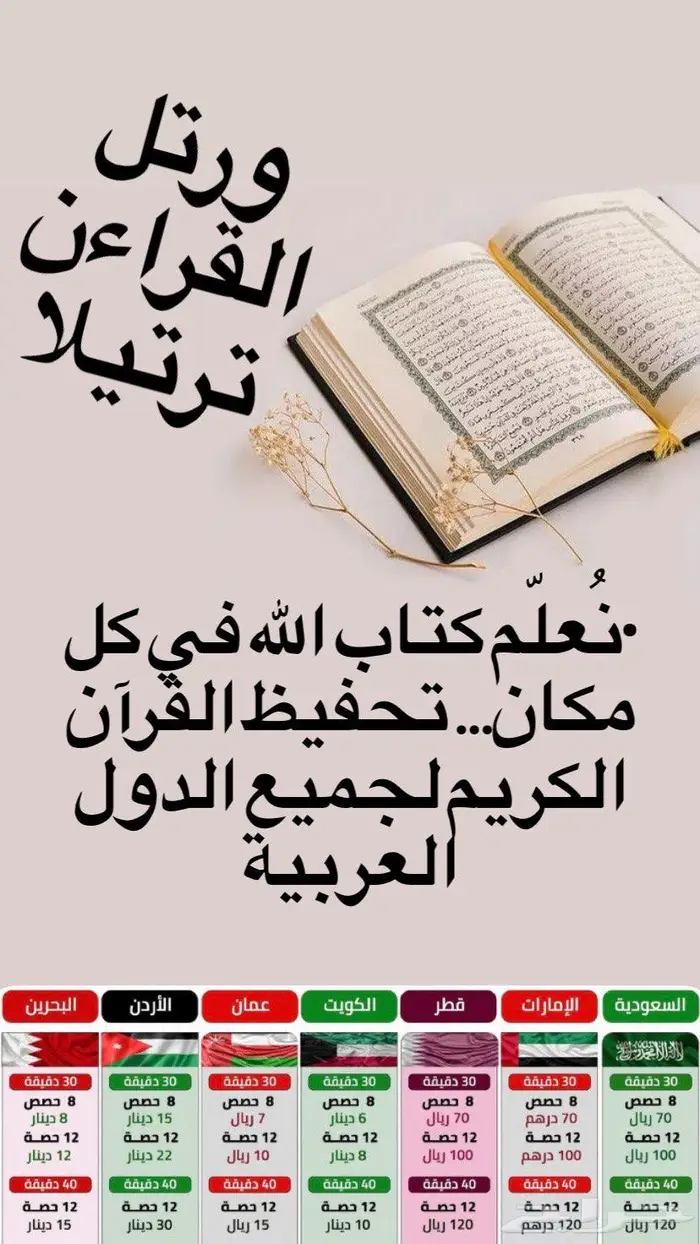 ورتل
القراءن
ترتيلا
•نُعلّم كتاب الله في كل
مكان... تحفيظ القرآن
الكريم لجميع الدول
العربية
السعودية الإمارات قطر الكويت عمان الأردن البحرين
30 دقيقة 30 دقيقة 30 دقيقة 30 دقيقة 30 دقيقة 30 دقيقة 30 دقيقة
8 حصص 8 حصص 8 حصص 8 حصص 8 حصص 8 حصص 8 حصص
70 ريال 70 درهم 70 ريال 6 دينار 7 ريال 15 دينار 8 دينار
12 حصة 12 حصة 12 حصة 12 حصة 12 حصة 12 حصة 12 حصة
100 ريال 100 درهم 100 ريال 8 دينار 10 ريال 22 دينار 12 دينار
40 دقيقة 40 دقيقة 40 دقيقة 40 دقيقة 40 دقيقة 40 دقيقة 40 دقيقة
12 حصة 12 حصة 12 حصة 12 حصة 12 حصة 12 حصة 12 حصة
120 ريال 120 درهم 120 ريال 10 دينار 15 ريال 30 دينار 15 دينار